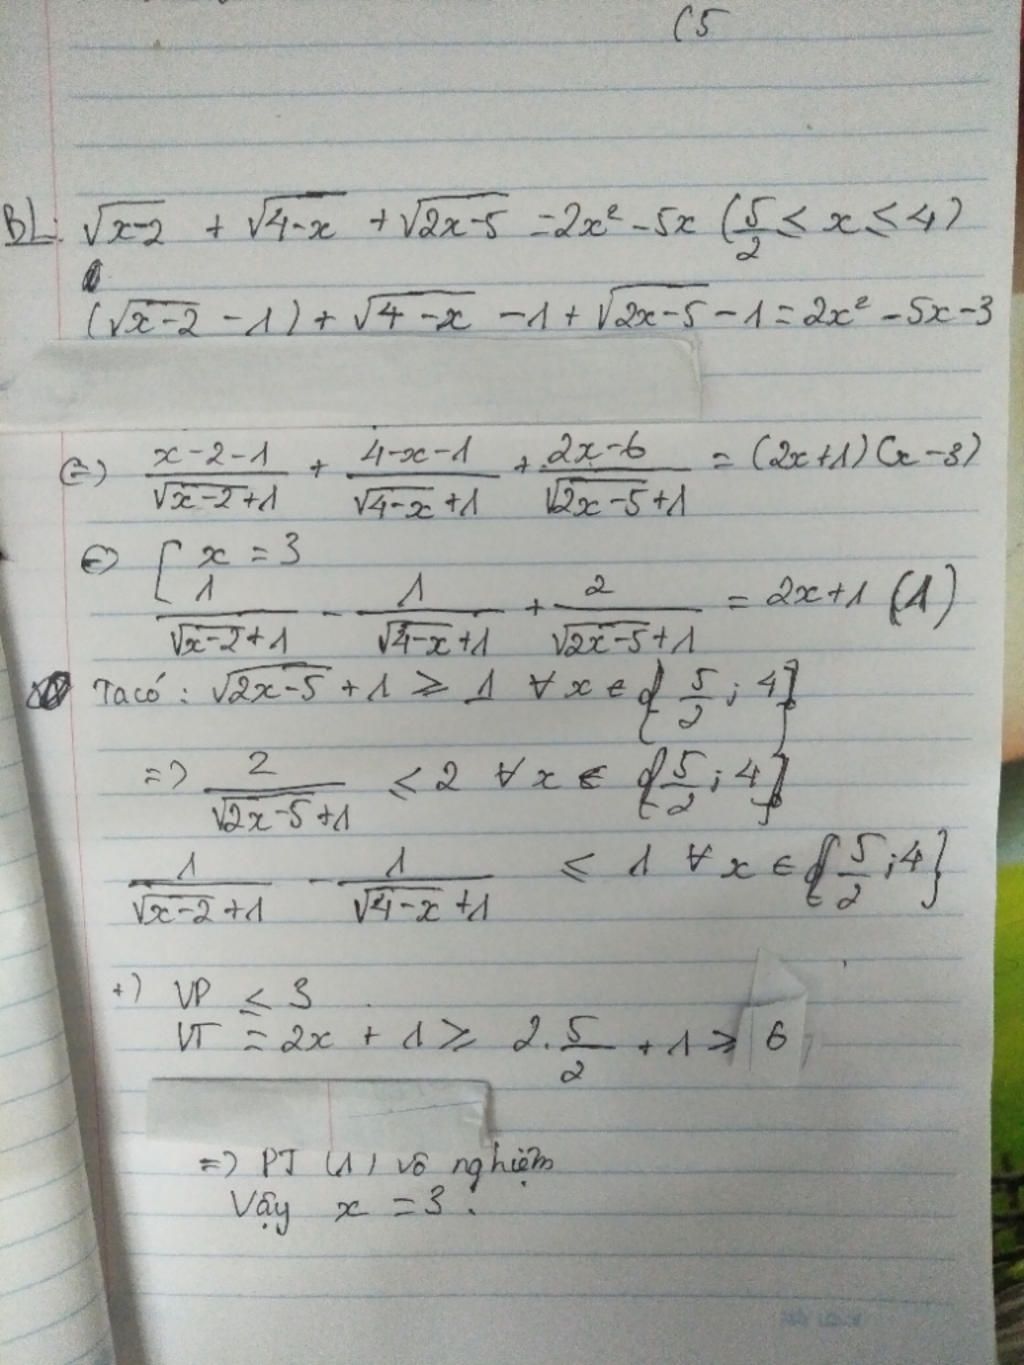 (5
BL: √x-2 + √4-x + √2x-5 = 2x² - 5x (5/2 ≤ x ≤ 4)
(√x-2 - 1) + √4-x - 1 + √2x-5 - 1 = 2x² - 5x - 3
(=) x-2-1/√x-2+1 + 4-x-1/√4-x+1 + 2x-6/√2x-5+1 = (2x+1)(x-3)
(=) [ x = 3
1/√x-2+1 - 1/√4-x+1 + 2/√2x-5+1 = 2x+1 (1)
Ta có: √2x-5 + 1 ≥ 1 ∀ x ∈ {5/2; 4}
=) 2/√2x-5+1 ≤ 2 ∀ x ∈ {5/2; 4}
1/√x-2+1 - 1/√4-x+1 ≤ 1 ∀ x ∈ {5/2; 4}
+) VP ≤ 3
VT = 2x + 1 ≥ 2. 5/2 + 1 ≥ 6
=) PT (1) vô nghiệm
Vậy x = 3.